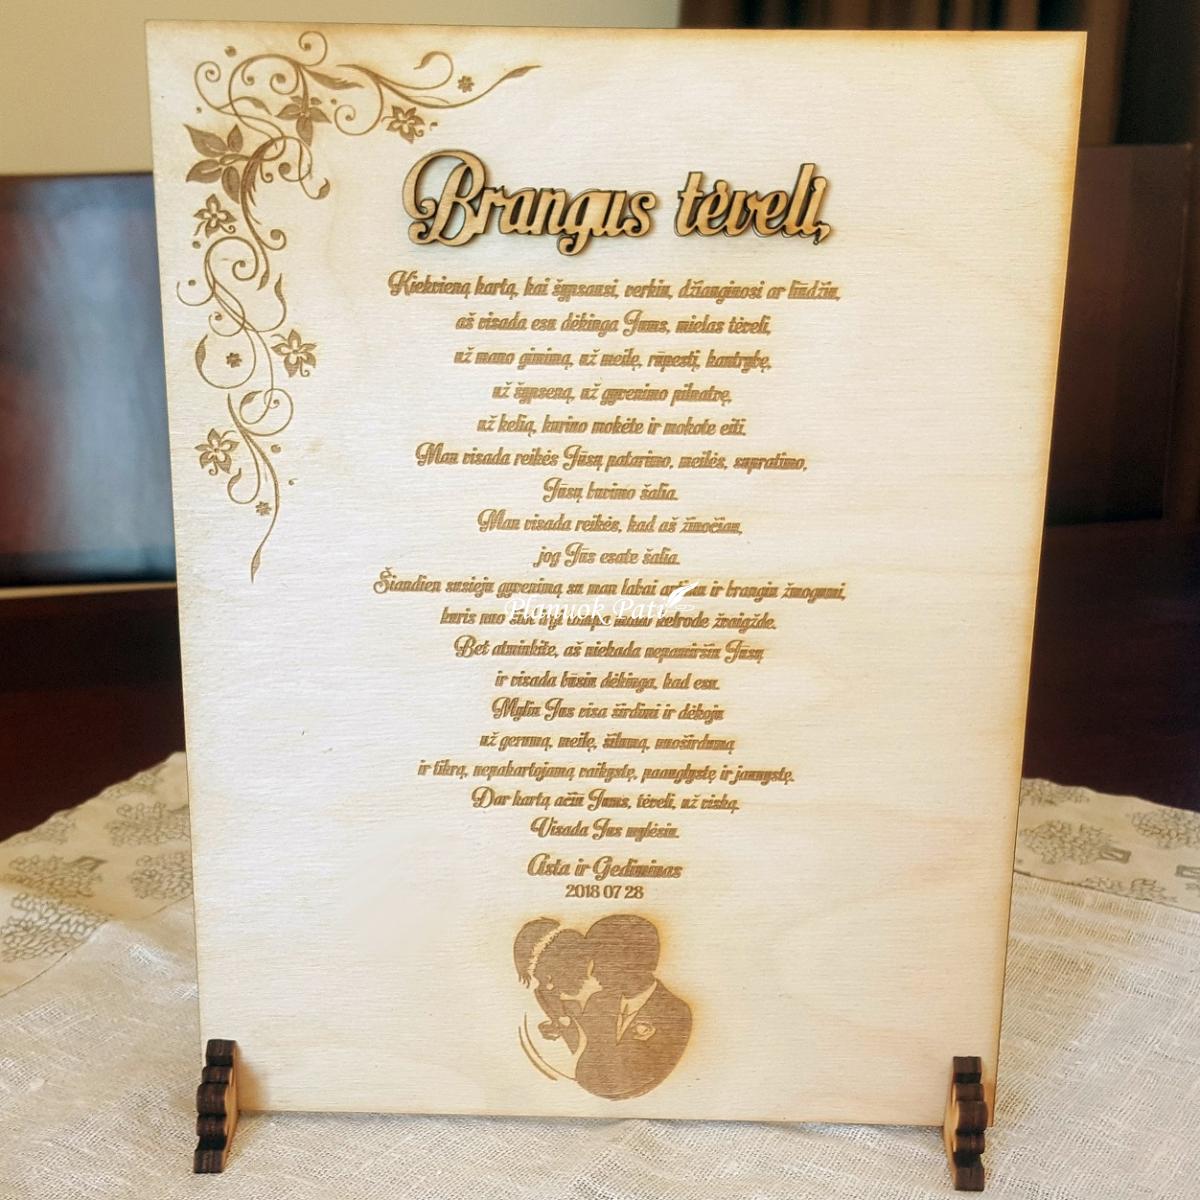 Brangus tėveli,
Kiekvieną kartą, kai šypsausi, verkiu, džiaugiuosi ar liūdžiu,
aš visada esu dėkinga Jums, mielas tėveli,
už mano gimimą, už meilę, rūpestį, kantrybę,
už šypseną, už gyvenimo pilnatvę,
už kelią, kuriuo mokėte ir mokote eiti.
Man visada reikės Jūsų patarimo, meilės, supratimo,
Jūsų buvimo šalia.
Man visada reikės, kad aš žinočiau,
jog Jūs esate šalia.
Šiandien susieju gyvenimą su man labai artimu ir brangiu žmogumi,
kuris nuo šiol kelrode žvaigžde.
Planuok Pati
Bet atminkite, aš niekada nepamiršiu Jūsų
ir visada būsiu dėkinga, kad esu.
Myliu Jus visa širdimi ir dėkoju
už gerumą, meilę, šilumą, nuoširdumą
ir tikrą, nepakartojamą vaikystę, paauglystę ir jaunystę.
Dar kartą ačiū Jums, tėveli, už viską.
Visada Jus mylėsiu.
Asta ir Gediminas
2018 07 28